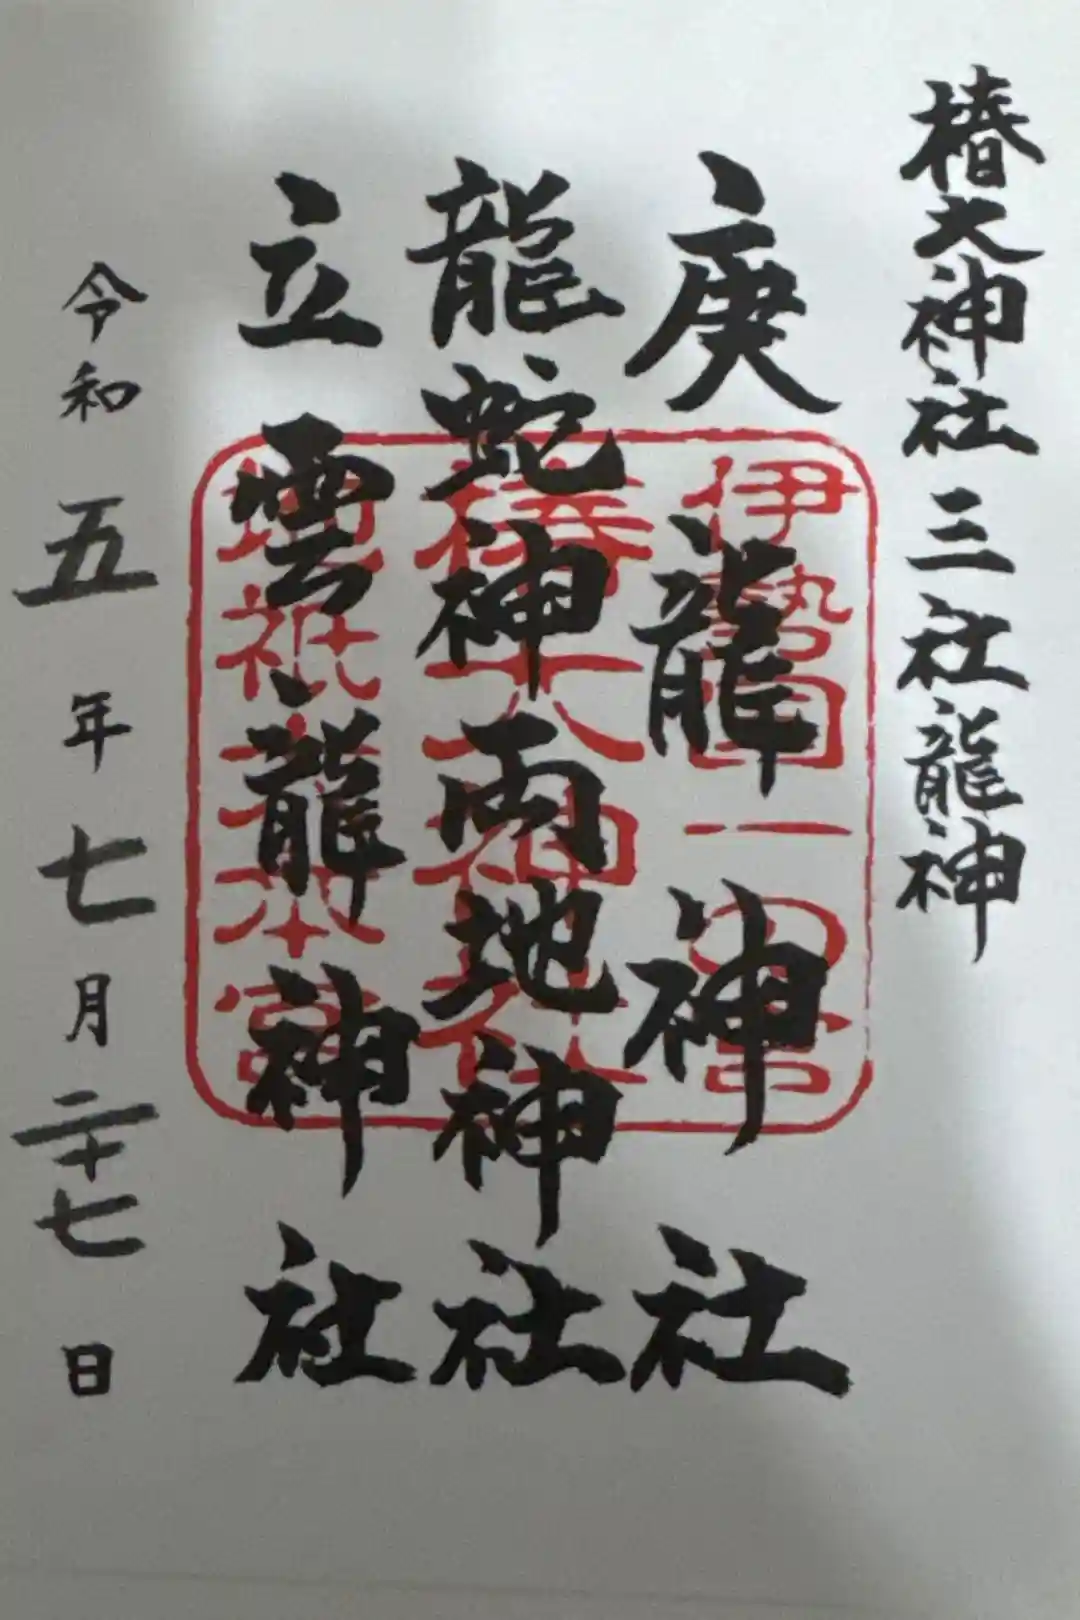 椿大神社 三社龍神
庚龍神社
龍蛇神両地神社
立雲龍神社
令和五年七月二十七日
伊勢国一の宮
椿大神社
地祇大本宮